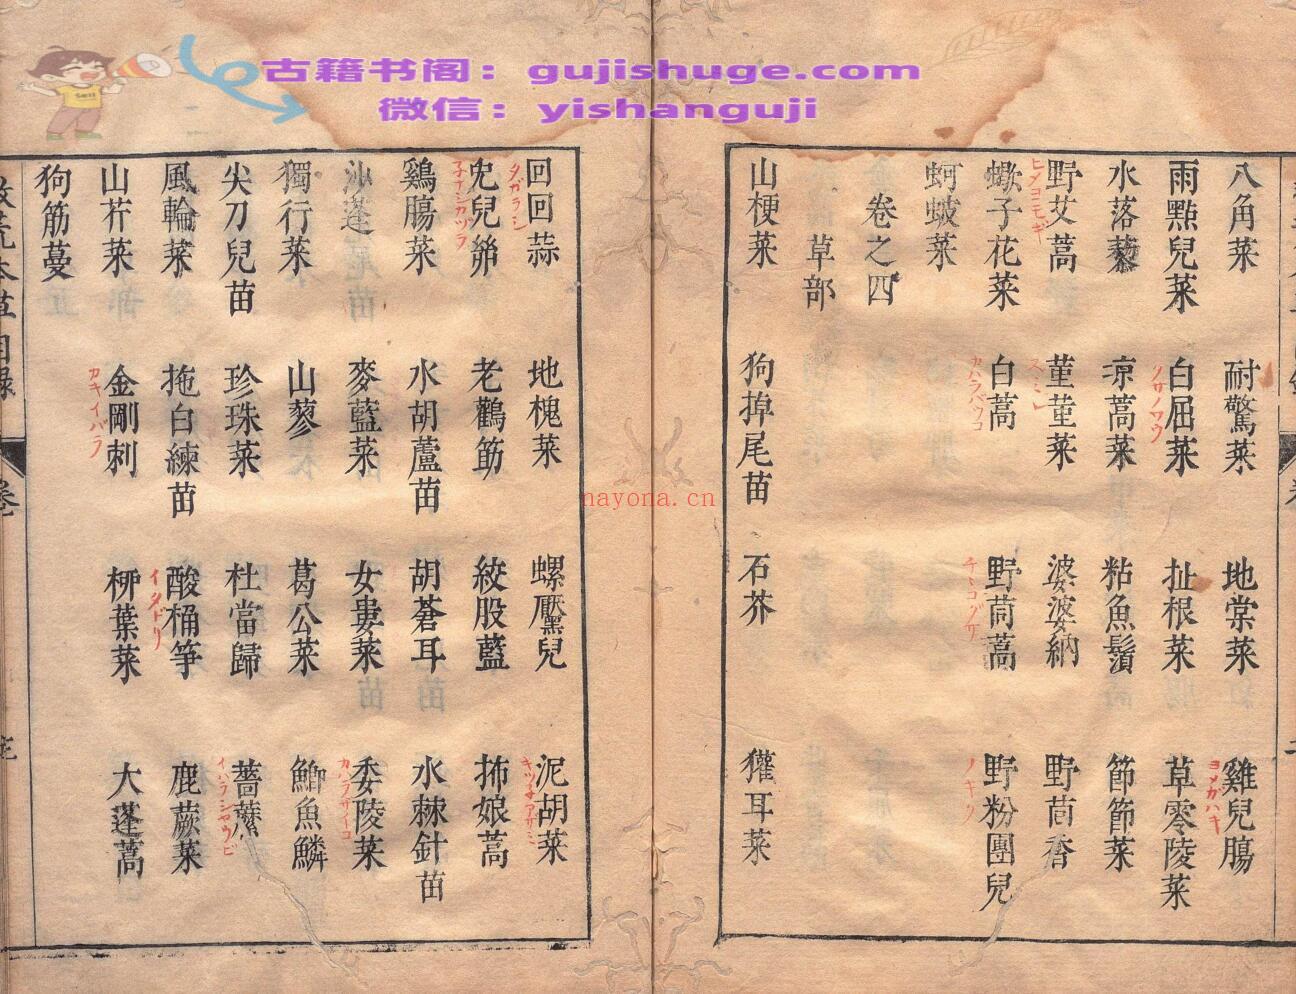 古籍书阁：gujishuge.com
微信：yishanguji
nayona.cn
八角菜 耐驚菜 地棠菜 雞兒腸
ヨメガハキ
雨點兒菜 白屈菜 扯根菜 草零陵菜
水落藜 凉蒿菜 粘魚鬚 節節菜
野艾蒿 菫菫菜 婆婆納 野茴香
ヒメヨモギ スミレ
蠍子花菜 白蒿 野茼蒿 野粉團兒
蚵蚾菜
卷之四
草部
山梗菜 狗掉尾苗 石芥 獾耳菜
回回蒜 地槐菜 螺黶兒 泥胡菜
タガラシ
兒兒 老鸛筋 絞股藍 抪娘蒿
鷄腸菜 水胡蘆苗 胡蒼耳 水棘針苗
沙蓬 麥藍菜 女婁菜 委陵菜
カハラサイコ
獨行菜 山蓼 葛公菜 鯽魚鱗
尖刀兒苗 珍珠菜 杜當歸 薔蘼
風輪菜 拖白練苗 酸桶笋 鹿蕨菜
イタドリ
山芥菜 金剛刺 柳葉菜 大蓬蒿
カキイバラ
狗筋蔓
救荒本草目錄 卷